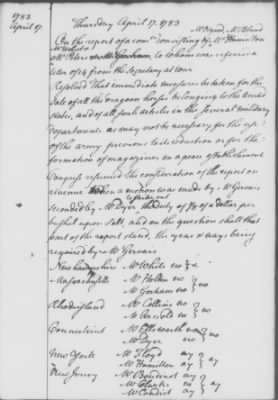 1783
April 17.
Thursday April 17. 1783
On the report of a comtee consisting of Mr Hamilton
Mr Peters & Mr Gorham to whom was referred a
letter of 14 from the Secretary at war
Resolved That immediate measures be taken for the
sale of all the dragoon horses belonging to the United
states, and of all such articles in the several military
Department as may not be necessary for the use
of the army previous to its reduction or for the
formation of magazines on a peace establishment
Congress resumed the consideration of the report on
revenue when a motion was made by Mr Gervais
seconded by Mr Dyer to strike out the duty of 1/8 of a dollar per
bushel upon Salt, and on the question shall that
part of the report stand, the yeas & nays being
required by Mr Gervais
New hampshire Mr White no
Massachusetts Mr Holten no
Mr Gorham no
Rhode island Mr Collins no
Mr Arnold no
Connecticut Mr Ellsworth no
Mr Dyer no
New York Mr Floyd ay
Mr Hamilton ay
New Jersey Mr Boudinot ay
Mr Clarke no
Mr Condict ay